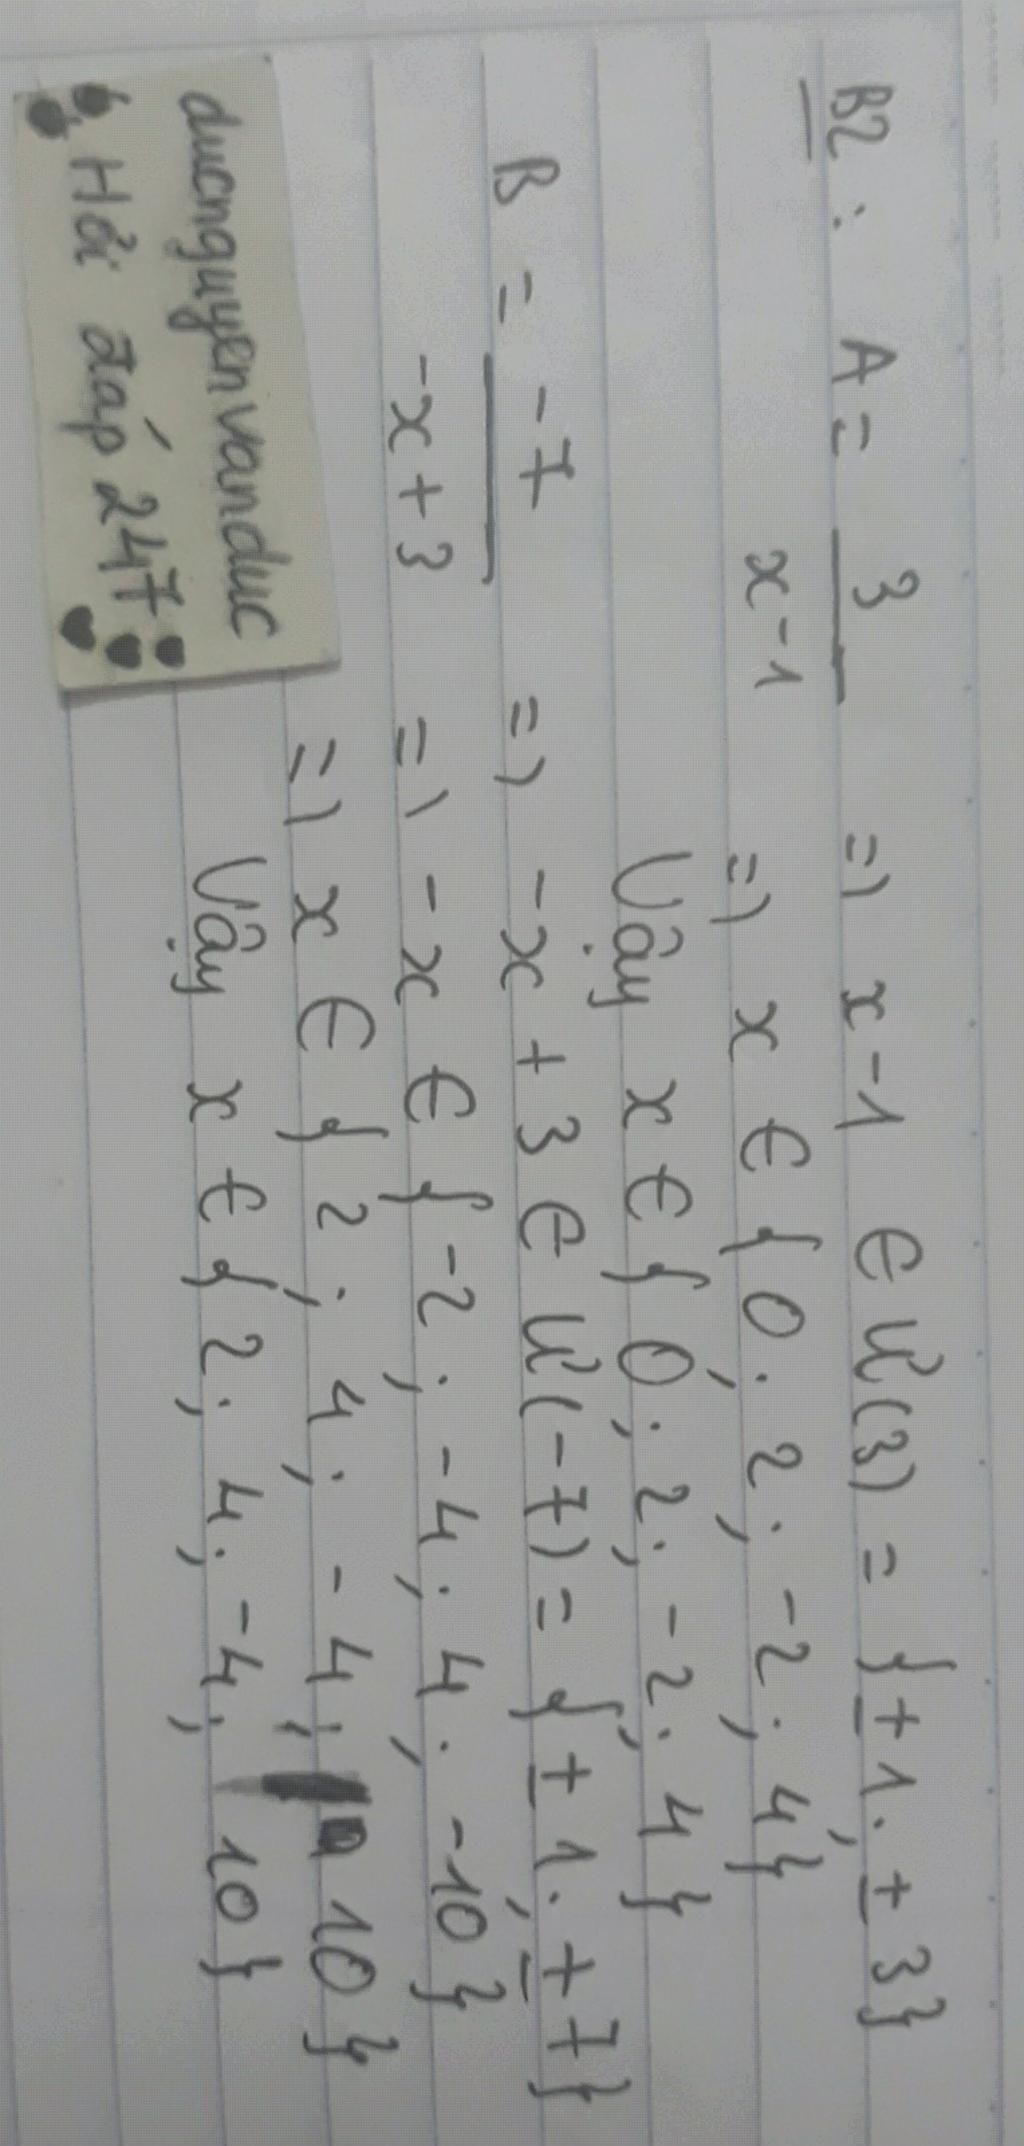 B2 : A = 3 / x - 1 => x - 1 ∈ Ư(3) = { ± 1 ; ± 3}
=> x ∈ { 0 ; 2 ; - 2 ; 4 }
Vậy x ∈ { 0 ; 2 ; - 2 ; 4 }
B = -7 / -x + 3 => - x + 3 ∈ Ư(-7) = { ± 1 ; ± 7 }
=> - x ∈ { -2 ; - 4 ; 4 ; -10 }
=> x ∈ { 2 ; 4 ; - 4 ; 10 }
Vậy x ∈ { 2 ; 4 ; -4 ; 10 }
ducnguyenvanduc
Hỏi đáp 247